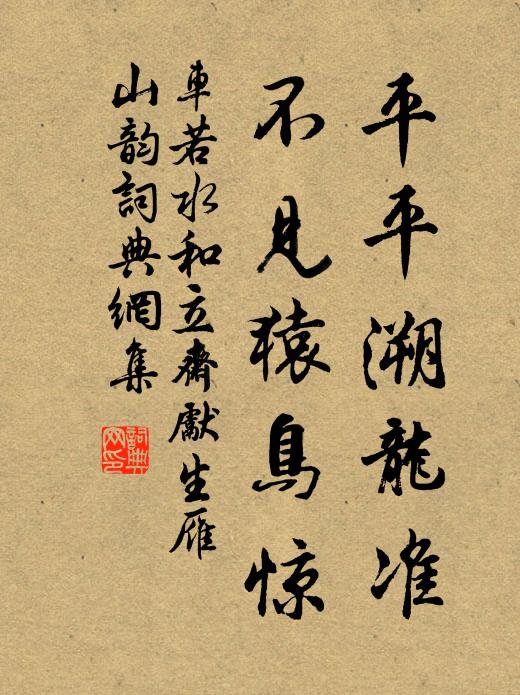 平平溯龍准
不見猿鳥惊
車若水和立齋獻生雁
山韵詞典網集
詞典
网印